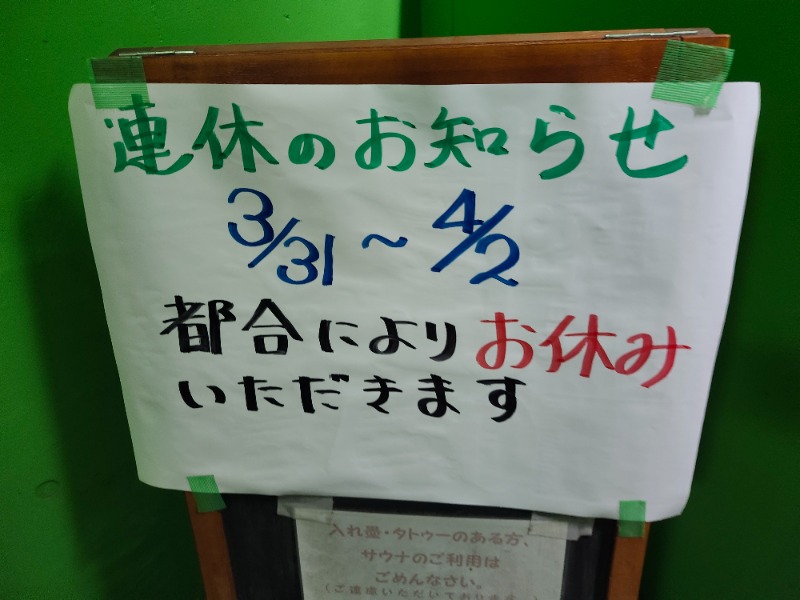 連休のお知らせ
3/31〜4/2
都合によりお休み
いただきます
入れ墨・タトゥーのある方、
サウナのご利用は
ごめんなさい。
(ご遠慮いただいております。)